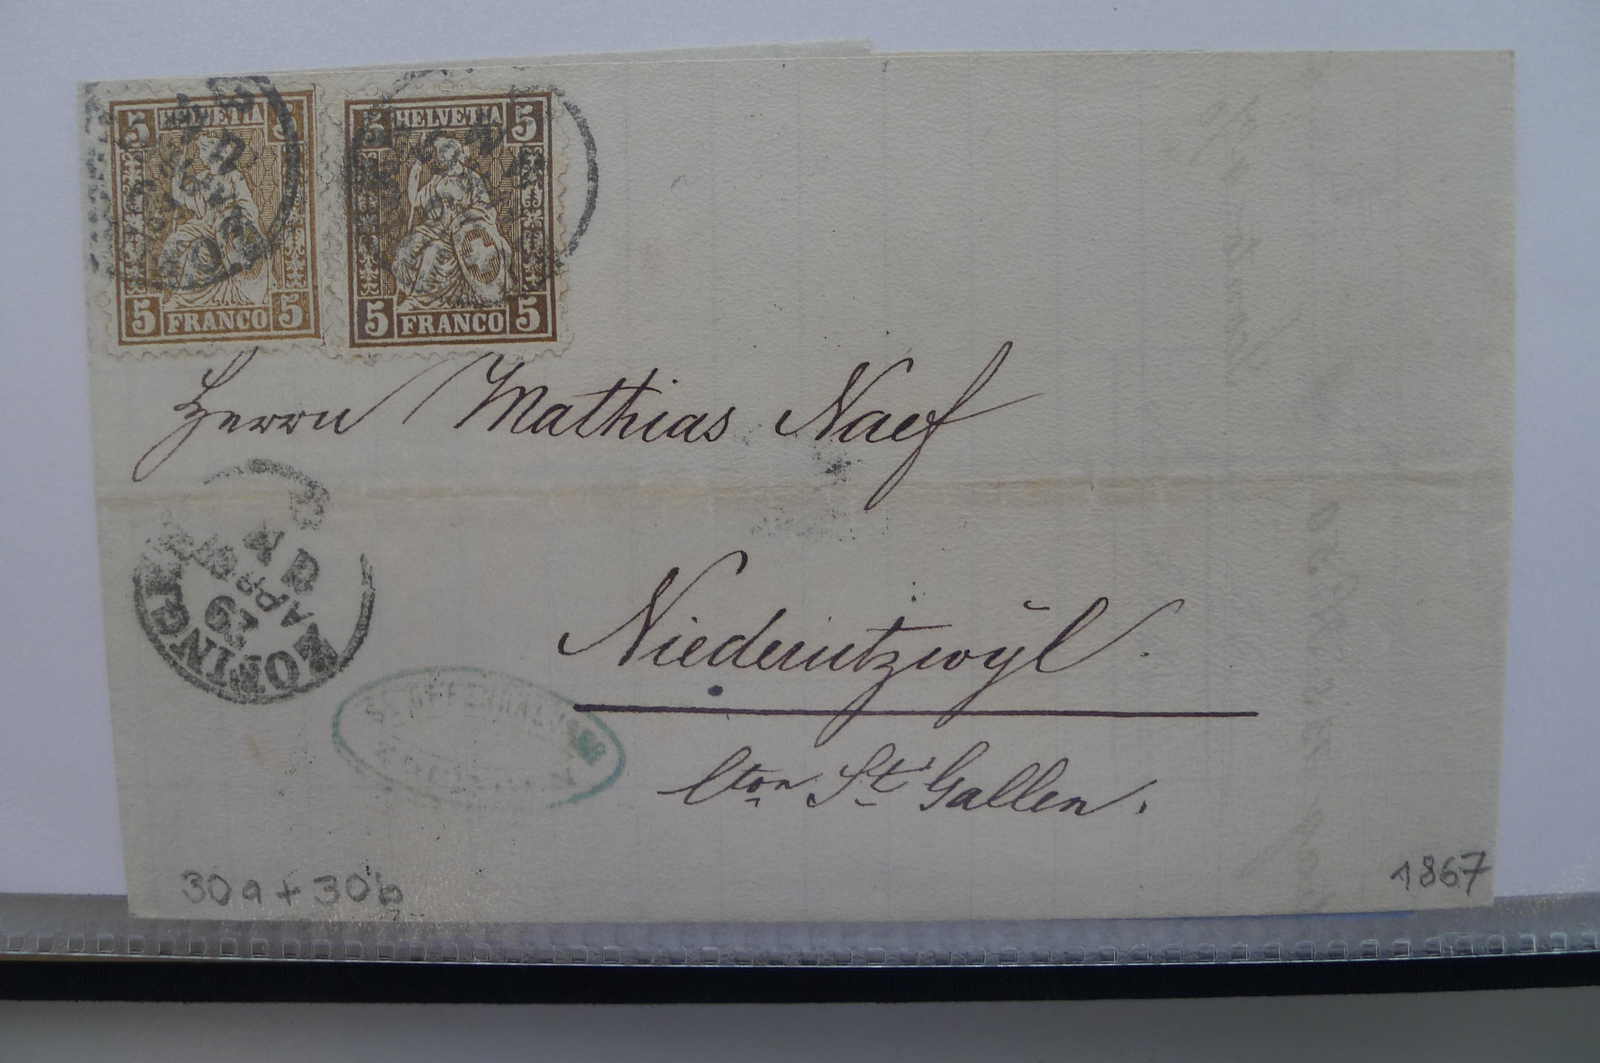 5 HELVETIA 5
5 FRANCO 5
5 HELVETIA 5
5 FRANCO 5
Herrn Mathias Naef
ZOFINGEN
29 APR 67
Niederutzwyl.
Cton St. Gallen.
30a + 30b
1867